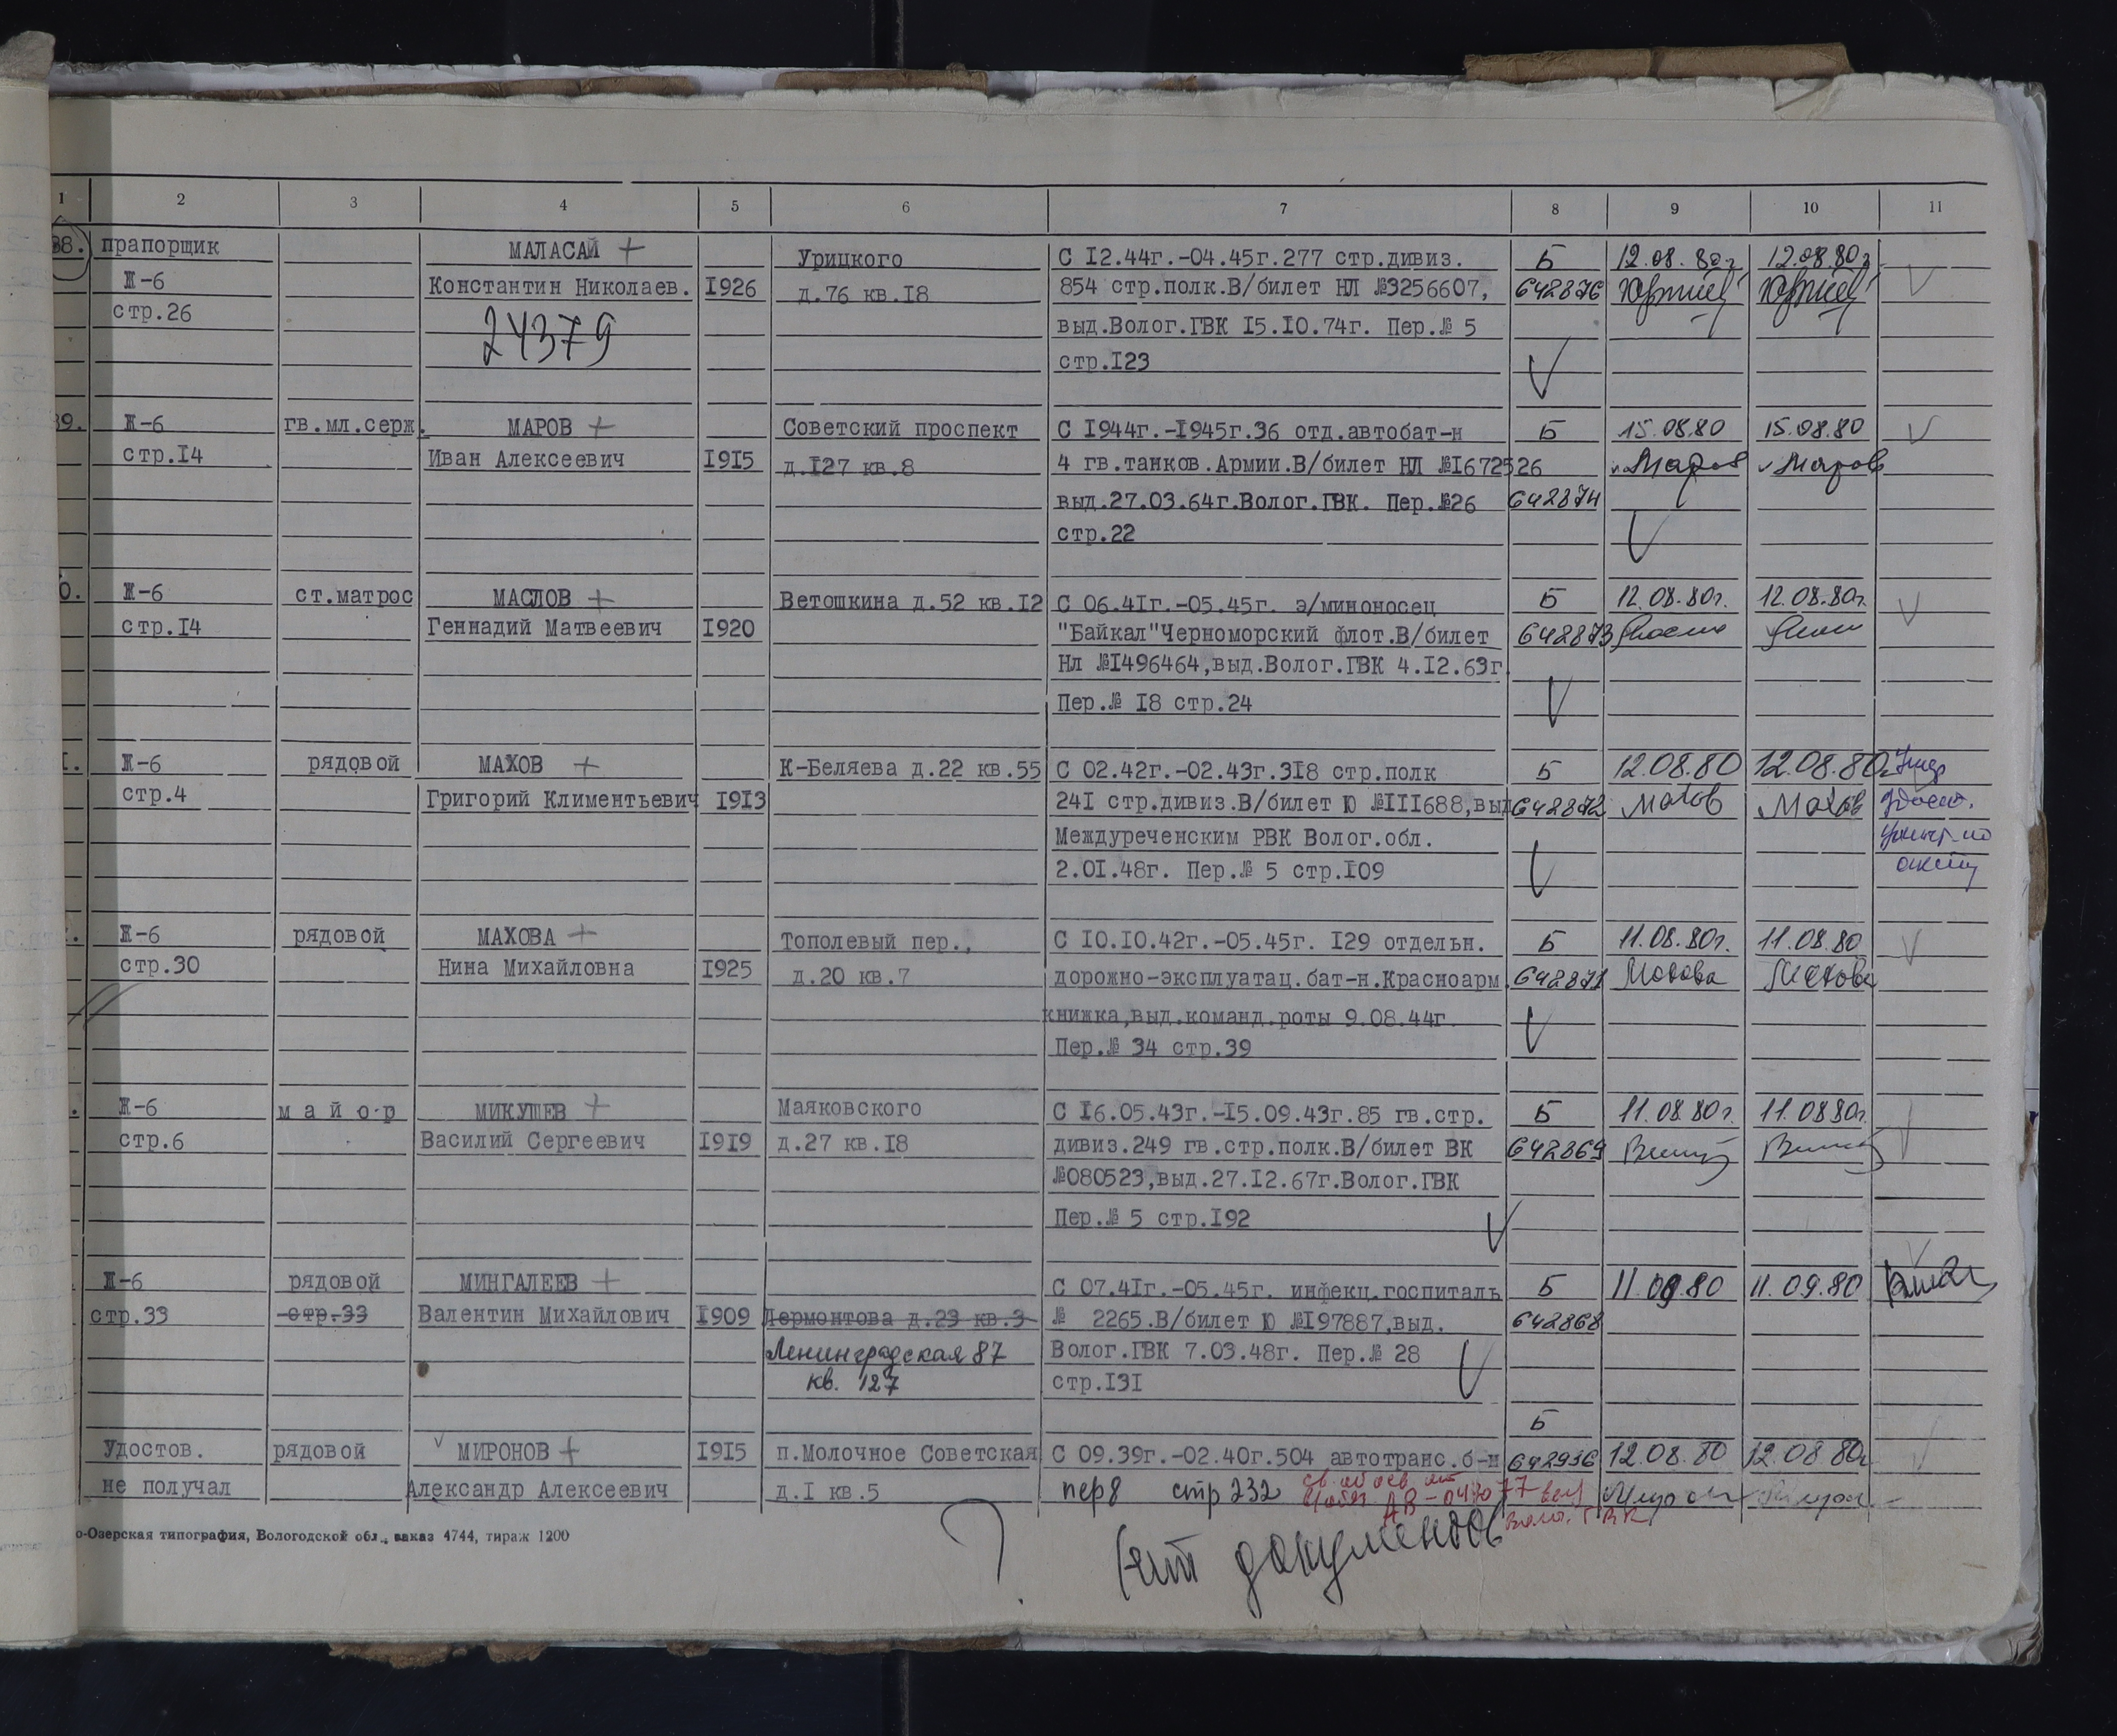 1 2 3 4 5 6 7 8 9 10 11
38. прапорщик МАЛАСАЙ + Урицкого С I2.44г.-04.45г.277 стр.дивиз. Б 12.08.80г 12.08.80г
Ж-6 Константин Николаев. I926 д.76 кв.I8 854 стр.полк.В/билет НЛ №3256607, 642876
стр.26 24379 выд.Волог.ГВК I5.I0.74г. Пер.№ 5
стр.I23
39. Ж-6 гв.мл.серж. МАРОВ + Советский проспект С I944г.-I945г.36 отд.автобат-н Б 15.08.80 15.08.80
стр.I4 Иван Алексеевич I9I5 д.I27 кв.8 4 гв.танков.Армии.В/билет НЛ №I672526 Маров Маров
выд.27.03.64г.Волог.ГВК. Пер.№26 642874
стр.22
0. Ж-6 ст.матрос МАСЛОВ + Ветошкина д.52 кв.I2 С 06.4Iг.-05.45г. э/миноносец Б 12.08.80г. 12.08.80г.
стр.I4 Геннадий Матвеевич I920 "Байкал"Черноморский флот.В/билет 642873
Нл №I496464,выд.Волог.ГВК 4.I2.63г.
Пер.№ I8 стр.24
I. Ж-6 рядовой МАХОВ + К-Беляева д.22 кв.55 С 02.42г.-02.43г.3I8 стр.полк Б 12.08.80 12.08.80г. Умер
стр.4 Григорий Климентьевич I9I3 24I стр.дивиз.В/билет Ю №III688,выд 642872 Махов Махов удост.
Междуреченским РВК Волог.обл. уничт-но
2.0I.48г. Пер.№ 5 стр.I09 акту
Ж-6 рядовой МАХОВА + Тополевый пер., С I0.I0.42г.-05.45г. I29 отдельн. Б 11.08.80г. 11.08.80
стр.30 Нина Михайловна I925 д.20 кв.7 дорожно-эксплуатац.бат-н.Красноарм. 642871 Махова Махова
книжка,выд.команд.роты 9.08.44г.
Пер.№ 34 стр.39
Ж-6 м а й о р МИКУШЕВ + Маяковского С I6.05.43г.-I5.09.43г.85 гв.стр. Б 11.08.80г. 11.08.80г.
стр.6 Василий Сергеевич I9I9 д.27 кв.I8 дивиз.249 гв.стр.полк.В/билет ВК 642869
№080523,выд.27.I2.67г.Волог.ГВК
Пер.№ 5 стр.I92
Ж-6 рядовой МИНГАЛЕЕВ + С 07.4Iг.-05.45г. инфекц.госпиталь Б 11.09.80 11.09.80
стр.33 стр.33 Валентин Михайлович I909 Лермонтова д.23 кв.3 № 2265.В/билет Ю №I97887,выд. 642868
Ленинградская 87 Волог.ГВК 7.03.48г. Пер.№ 28
кв. 127 стр.I3I
Б
Удостов. рядовой МИРОНОВ + I9I5 п.Молочное Советская С 09.39г.-02.40г.504 автотранс.б-н 642936 12.08.80 12.08.80г
не получал Александр Алексеевич д.I кв.5 пер8 стр 232
АВ-
о-Озерская типография, Вологодской обл., заказ 4744, тираж 1200
? нет документов